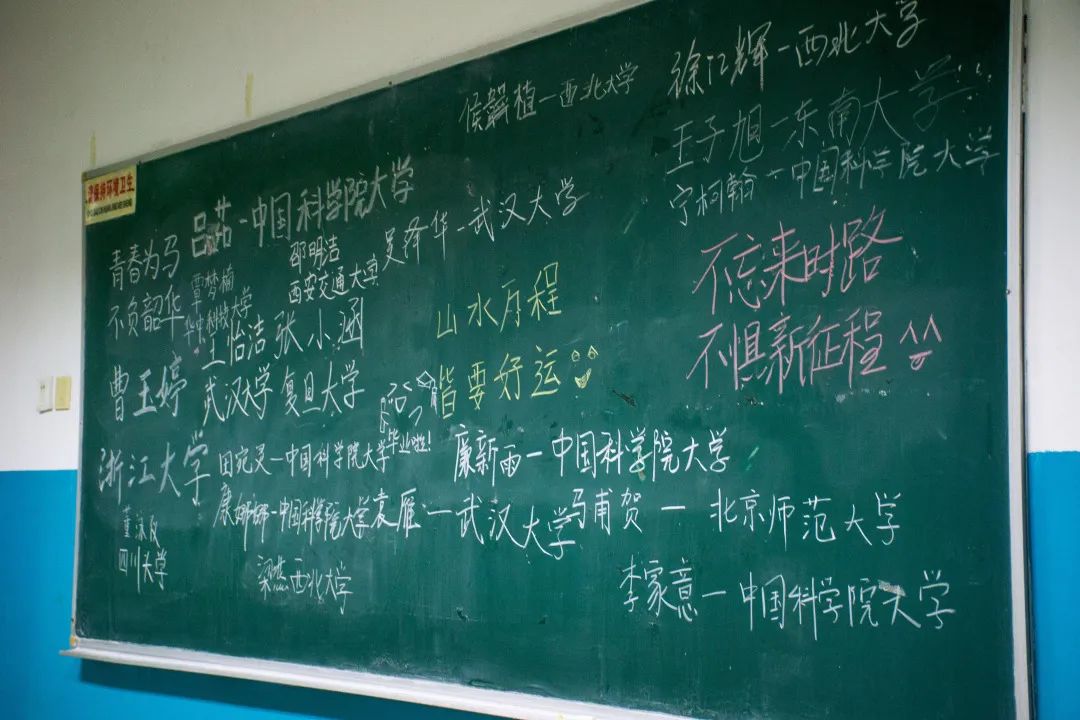 请保持环境卫生
侯韫植-西北大学
徐江辉-西北大学
王子旭-东南大学!!!
宁柯翰-中国科学院大学
吕茹-中国科学院大学
吴泽华-武汉大学
青春为马
不负韶华
覃梦楠
华中科技大学
邵明洁
西安交通大学
王怡洁
武汉大学
张小涵
复旦大学
山水万程
皆要好运
不忘来时路
不惧新征程
曹玉婷
浙江大学
毕业啦!
田宛灵-中国科学院大学
廉新雨-中国科学院大学
康娜娜-中国科学院大学
袁雁-武汉大学
马甫贺-北京师范大学
董泳
四川大学
梁燕西北大学
李家意-中国科学院大学